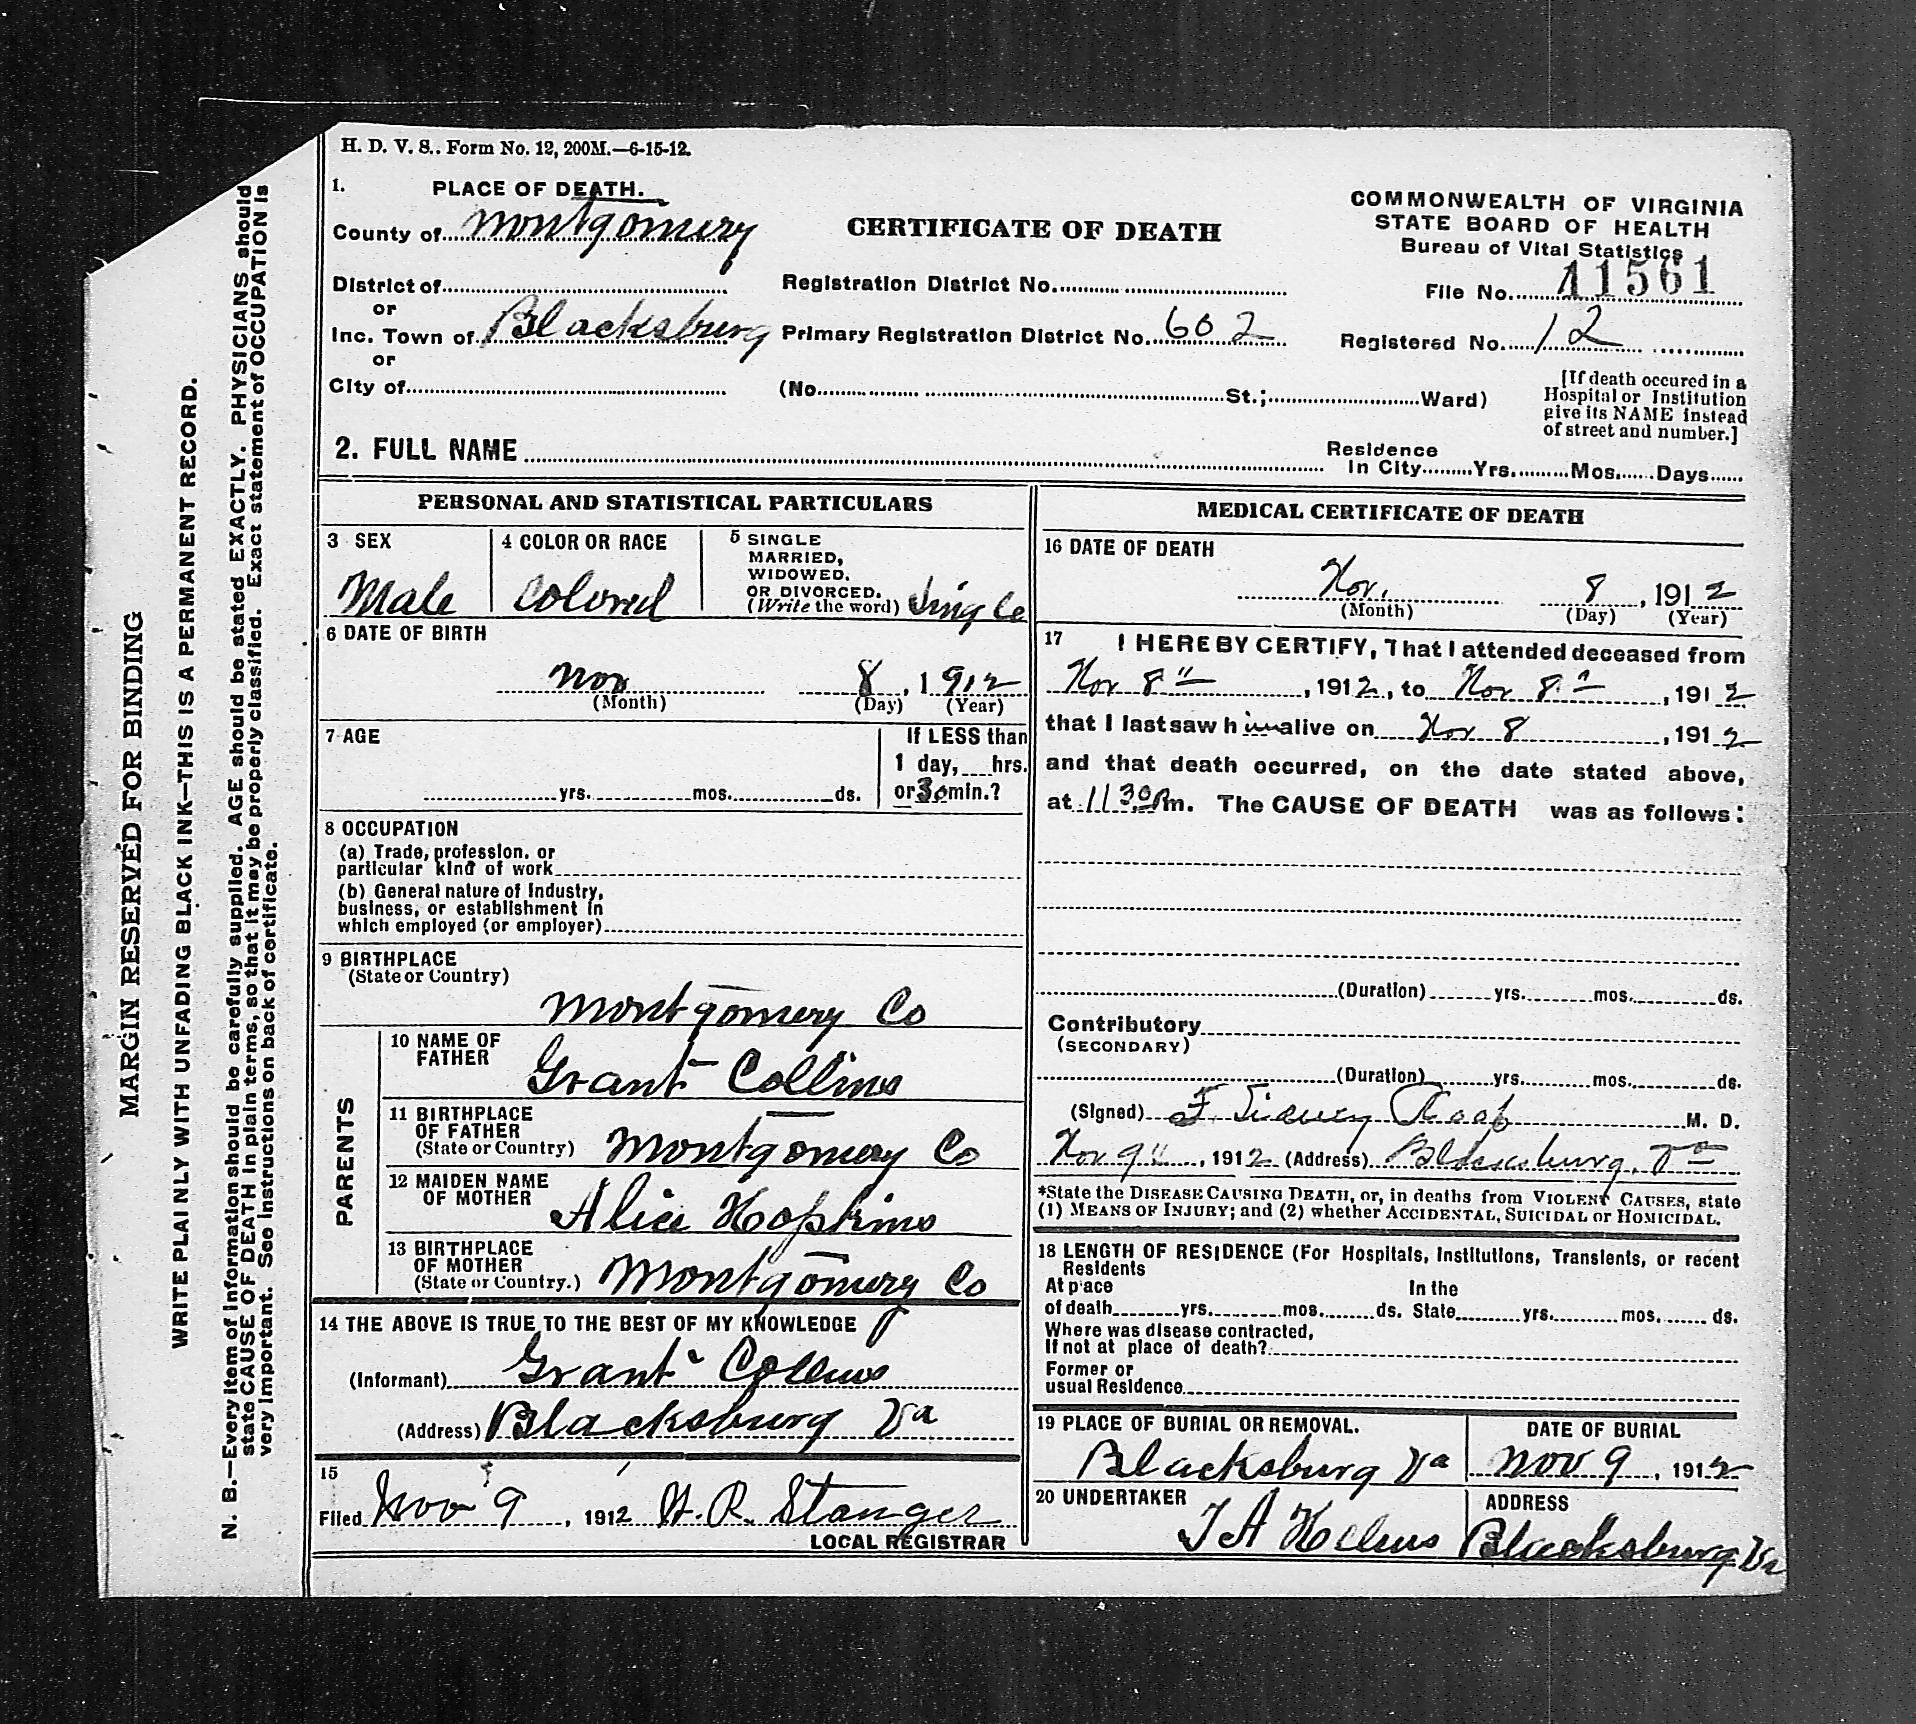 H. D. V. S.. Form No. 12, 200M.—6-15-12.
1. PLACE OF DEATH.
County of Montgomery
District of
or
Inc. Town of Blacksburg
or
City of
CERTIFICATE OF DEATH
Registration District No.
Primary Registration District No. 602
(No. St.; Ward)
COMMONWEALTH OF VIRGINIA
STATE BOARD OF HEALTH
Bureau of Vital Statistics
File No. 11561
Registered No. 12
[If death occured in a
Hospital or Institution
give its NAME instead
of street and number.]
2. FULL NAME
Residence
In City Yrs. Mos. Days
PERSONAL AND STATISTICAL PARTICULARS
3 SEX
Male
4 COLOR OR RACE
Colored
5 SINGLE
MARRIED,
WIDOWED.
OR DIVORCED.
(Write the word) Single
6 DATE OF BIRTH
Nov 8, 1912
(Month) (Day) (Year)
7 AGE
yrs. mos. ds.
If LESS than
1 day, hrs.
or 30 min.?
8 OCCUPATION
(a) Trade, profession. or
particular kind of work
(b) General nature of Industry,
business, or establishment in
which employed (or employer)
9 BIRTHPLACE
(State or Country)
Montgomery Co
PARENTS
10 NAME OF
FATHER
Grant Collins
11 BIRTHPLACE
OF FATHER
(State or Country) Montgomery Co
12 MAIDEN NAME
OF MOTHER
Alice Hopkins
13 BIRTHPLACE
OF MOTHER
(State or Country.) Montgomery Co
14 THE ABOVE IS TRUE TO THE BEST OF MY KNOWLEDGE
(Informant) Grant Collins
(Address) Blacksburg Va
15
Filed Nov 9, 1912 H. R. Stanger
LOCAL REGISTRAR
MEDICAL CERTIFICATE OF DEATH
16 DATE OF DEATH
Nov. 8, 1912
(Month) (Day) (Year)
17 I HEREBY CERTIFY, That I attended deceased from
Nov 8", 1912, to Nov 8", 1912
that I last saw him alive on Nov 8, 1912
and that death occurred, on the date stated above,
at 11 30 Pm. The CAUSE OF DEATH was as follows:
(Duration) yrs. mos. ds.
Contributory
(SECONDARY)
(Duration) yrs. mos. ds.
(Signed) F. Sidney M. D.
Nov 9", 1912 (Address) Blacksburg, Va
*State the DISEASE CAUSING DEATH, or, in deaths from VIOLENT CAUSES, state
(1) MEANS OF INJURY; and (2) whether ACCIDENTAL, SUICIDAL or HOMICIDAL.
18 LENGTH OF RESIDENCE (For Hospitals, Institutions, Transients, or recent
Residents
At place In the
of death yrs. mos. ds. State yrs. mos. ds.
Where was disease contracted,
If not at place of death?
Former or
usual Residence
19 PLACE OF BURIAL OR REMOVAL.
Blacksburg Va
DATE OF BURIAL
Nov 9, 1912
20 UNDERTAKER
T A Helms
ADDRESS
Blacksburg Va
MARGIN RESERVED FOR BINDING
WRITE PLAINLY WITH UNFADING BLACK INK—THIS IS A PERMANENT RECORD.
N. B.—Every item of information should be carefully supplied. AGE should be stated EXACTLY. PHYSICIANS should
state CAUSE OF DEATH in plain terms, so that it may be properly classified. Exact statement of OCCUPATION is
very important. See instructions on back of certificate.